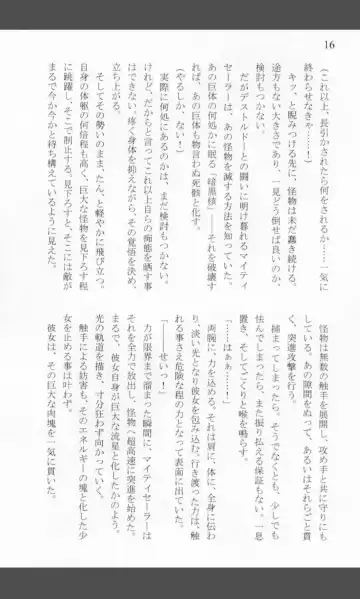 16
（これ以上、長引かされたら何をされるか……一気に
終わらせなきゃ……！）
キッ、と睨みつける先に、怪物は未だ蠢き続ける。
途方もない大きさであり、一見どう倒せば良いのか、
検討もつかない。
だがデストルドーとの闘いに明け暮れるマイティ
セーラーは、あの怪物を滅する方法を知っていた。
あの巨体の何処かに眠る「暗黒核」――それを破壊す
れば、あの巨体も物言わぬ死骸と化す。
（やるしか、ない！）
実際に何処にあるのかは、まだ検討もつかない。
けれど、だからと言ってこれ以上自らの痴態を晒す事
はできない。疼く身体を抑えながら、その覚悟を決め、
立ち上がる。
そしてその勢いのまま、とん、と軽やかに飛び立つ。
自身の体躯の何倍程も高く、巨大な怪物を見下ろす程
に跳躍し、そこで制止する。見下ろすと、そこには敵が
まるで今か今かと待ち構えているように見えた。
怪物は無数の触手を展開し、攻め手と共に守りにも
している。あの隙間をぬって、あるいはそれごと貫
く、突進攻撃を行う。
捕まってしまったら。そうでなくとも、少しでも
怯んでしまったら、また振り払える保証もない。一息
置き、そしてごくりと喉を鳴らす。
「……はぁぁ……！」
両腕に、力を込める。それは肩に、体に、全身に伝わ
り、淡い光となり彼女を包み込む。行き渡った力は、触
れる事さえ危険な程の力となって表面に出ていた。
「――――せいっ！」
力が限界まで溜まった瞬間に、マイティセーラーは
それを全力で放出し、怪物へ超高速に突進を始めた。
まるで、彼女自身が巨大な流星と化したかのよう。
光の軌道を描き、寸分狂わず向かっていく。
触手による妨害も、そのエネルギーの塊と化した少
女を止める事は叶わず。
彼女は、その巨大な肉塊を一気に貫いた。